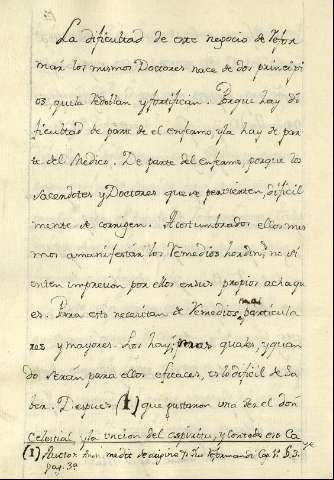 La dificultad de este negocio de refor
mar los mismos Doctores nace de dos principi
os que la rodean y fortifican. Porque hay di
ficultad de parte del enfermo, y la hay de par
te del Medico. De parte del Enfermo, porque los
Sacerdotes y Doctores que se pervierten, dificil
mente se corrigen. Acostumbrados ellos mis
mos a manifestar los remedios no si
enten impresion por ellos en sus propios achaqu
es. Para esto necesitan de remedios mas particula
res y mayores. Los hay; mas quales, y quan
do serán para ellos eficaces, es lo dificil de sa
ber. Despues (1) que gustaron una vez el don
Celestial, y la uncion del espiritu, y con todo eso Ca
(1) Auctor Cap. 1º § 3.
pag. 3ª